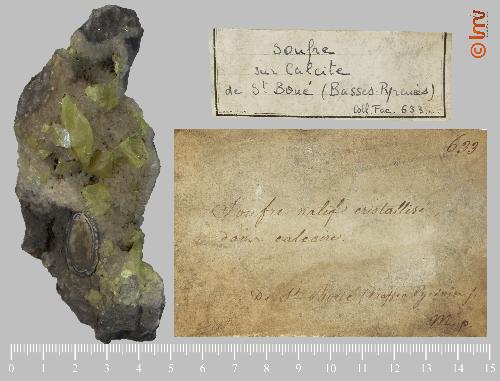 Soufre
sur Calcite
de St Boué (Basses Pyrénées)
Coll. Fac. 633
633
Soufre natif cristallisé
dans calcaire.
De St Boué (Basses Pyrénées).
lmv
0 1 2 3 4 5 6 7 8 9 10 11 12 13 14 15